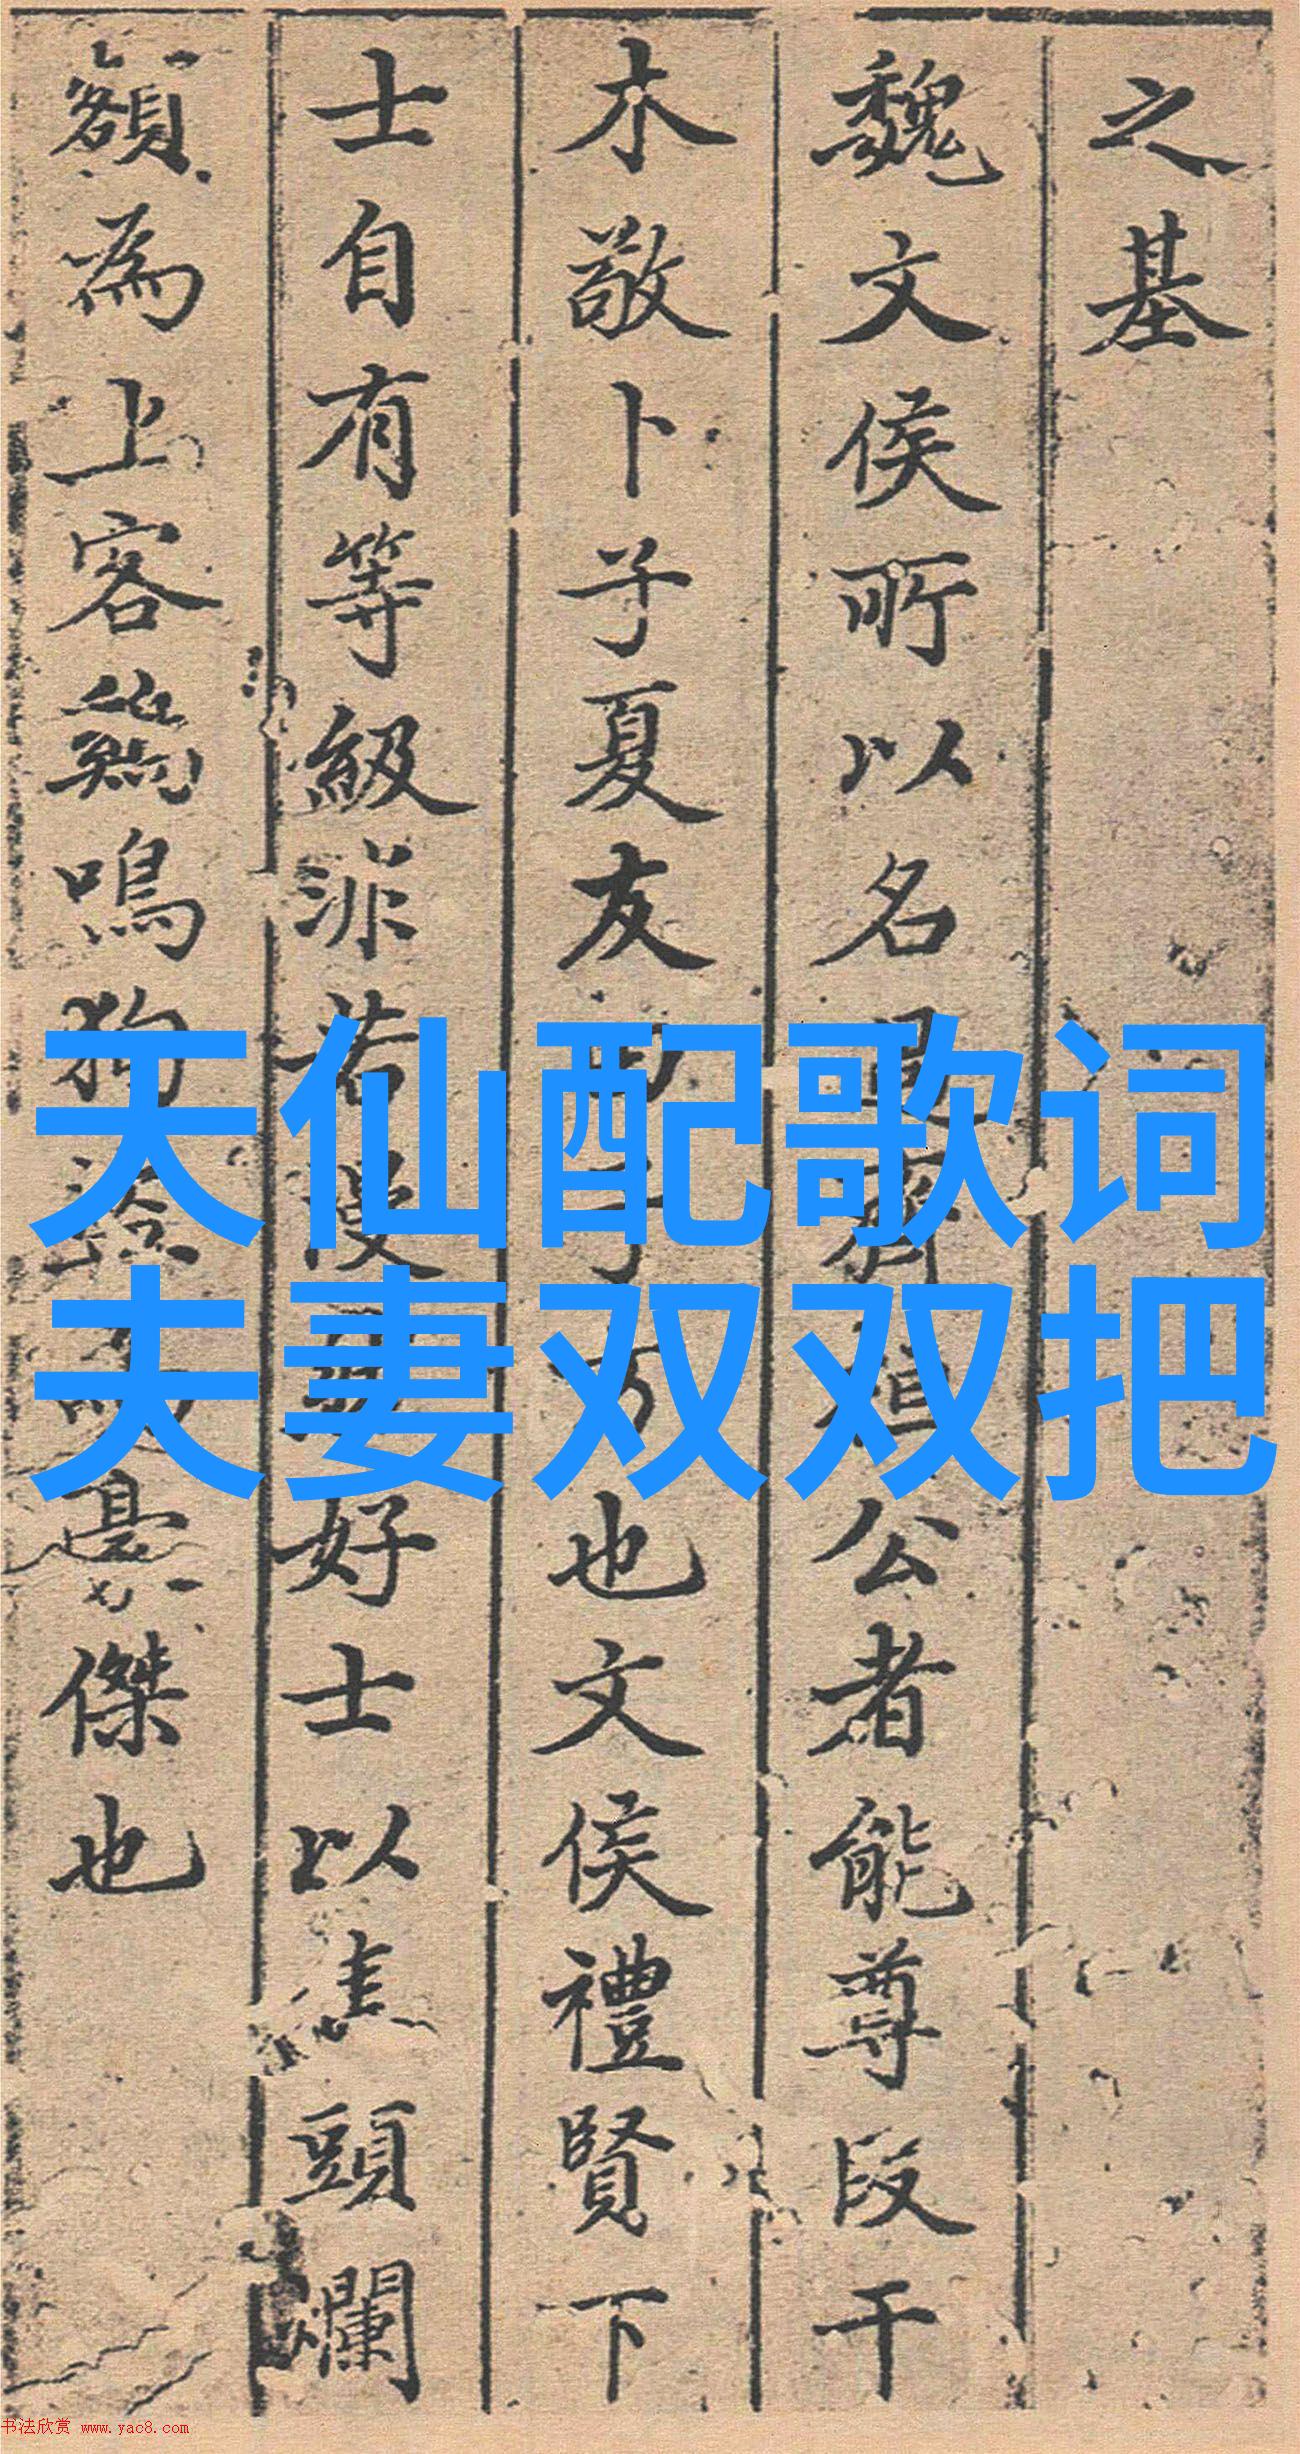 之基
魏文侯所以名過齊桓公者能尊段干
木敬卜子夏友田子方也文侯禮賢下
士自有等級非若漫好士以焦頭爛
額為上客鷄鳴狗盜為豪傑也
天仙配歌词
夫妻双双把
书法欣赏 www.yac8.com